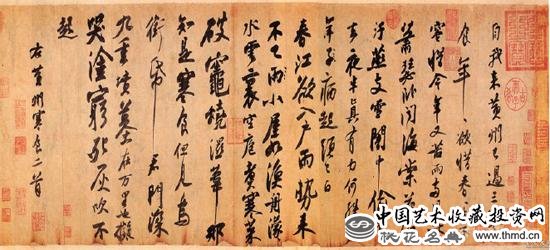 自我來黃州已過三
食年〻欲惜春
容惜今年又苦雨兩
蕭瑟卧聞海棠花
汙燕支雪闇中偷
去夜半真有力何殊
年子病起頭已白
春江欲入戶雨勢來
不已雨小屋如漁舟濛
水雲裏空庖煮寒菜
破竈燒溼葦那
知是寒食但見烏
銜帋 君門深
九重墳墓在万里也擬
哭塗窮死灰吹不
起
右黃州寒食二首
中国艺术收藏投资网
www.thmd.cn